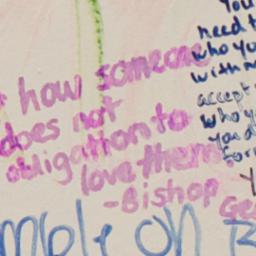 how someone
does not
obligation to
love them
-Bishop
You
need t
who yo
with
accept
who yo
you
for
on